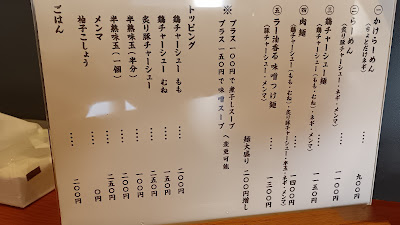 ㊀ かけらーめん
(ちょっとだけネギ)
‥‥ 九〇〇円
㊁ らーめん
(炙り豚チャーシュー・ネギ・メンマ)
‥‥ 一一〇〇円
㊂ 鶏チャーシュー麺
(鶏チャーシュー(もも・むね)・ネギ・メンマ)
‥‥ 一一五〇円
㊃ 肉麺
(鶏チャーシュー(もも・むね)・炙り豚チャーシュー・玉・ネギ・メンマ)
‥‥ 一四〇〇円
㊄ ラー油香る味噌つけ麺
(豚チャーシュー・玉・ネギ・メンマ)
‥‥ 一三〇〇円
麺大盛り 二〇〇円増し
※ プラス一〇〇円で煮干しスープ
プラス一五〇円で味噌スープ
へ変更可能
トッピング
鶏チャーシュー もも ‥‥ 二〇〇円
鶏チャーシュー むね ‥‥ 一五〇円
炙り豚チャーシュー ‥‥ 二五〇円
半熟味玉(半分) ‥‥
半熟味玉(一個) ‥‥
メンマ ‥‥ 二〇〇円
柚子こしょう ‥‥ 〇円
ごはん ‥‥ 二〇〇円